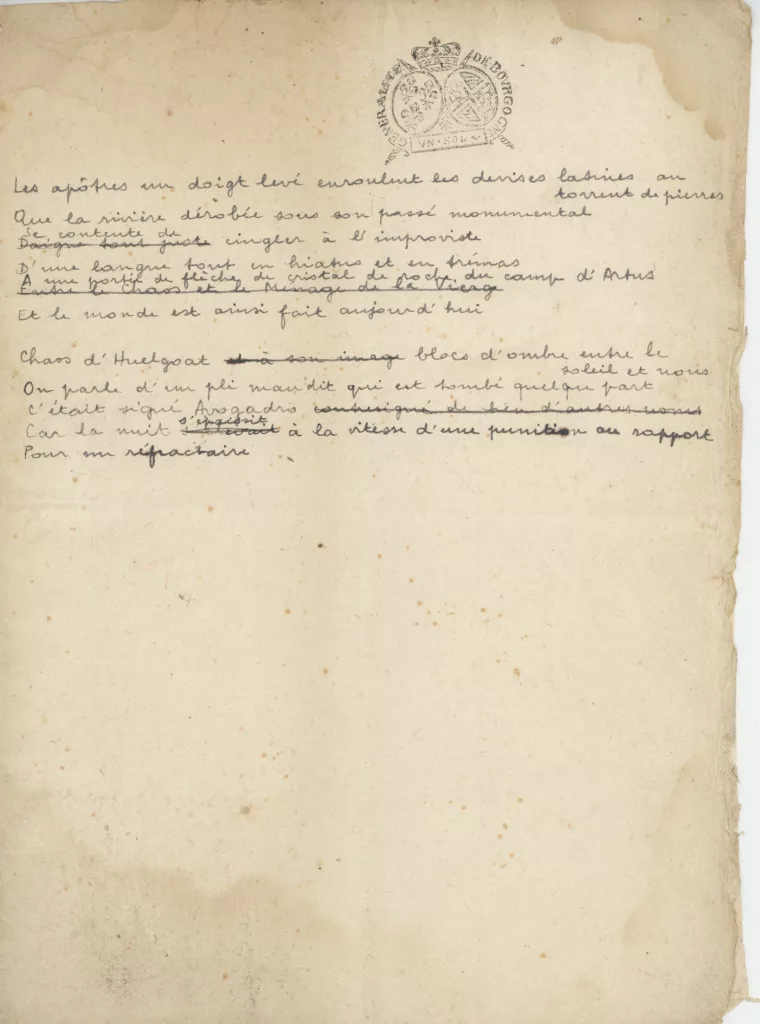 GENERALITE DE BOURGOGNE
VN · SOL
Les apôtres un doigt levé enroulent les devises latines au
torrent de pierres
Que la rivière dérobée sous son passé monumental
Se contente de
Daigne tout juste cingler à l'improviste
D'une langue tout en hiatus et en trémas
A une portée de flèche de cristal de roche du camp d'Artus
Entre le Chaos et le Ménage de la Vierge
Et le monde est ainsi fait aujourd'hui
Chaos d'Huelgoat et à son image blocs d'ombre entre le
soleil et nous
On parle d'un pli maudit qui est tombé quelque part
C'était signé Avogadro contresigné de bien d'autres noms
s'épaissit
Car la nuit à la vitesse d'une punition au rapport
Pour un réfractaire